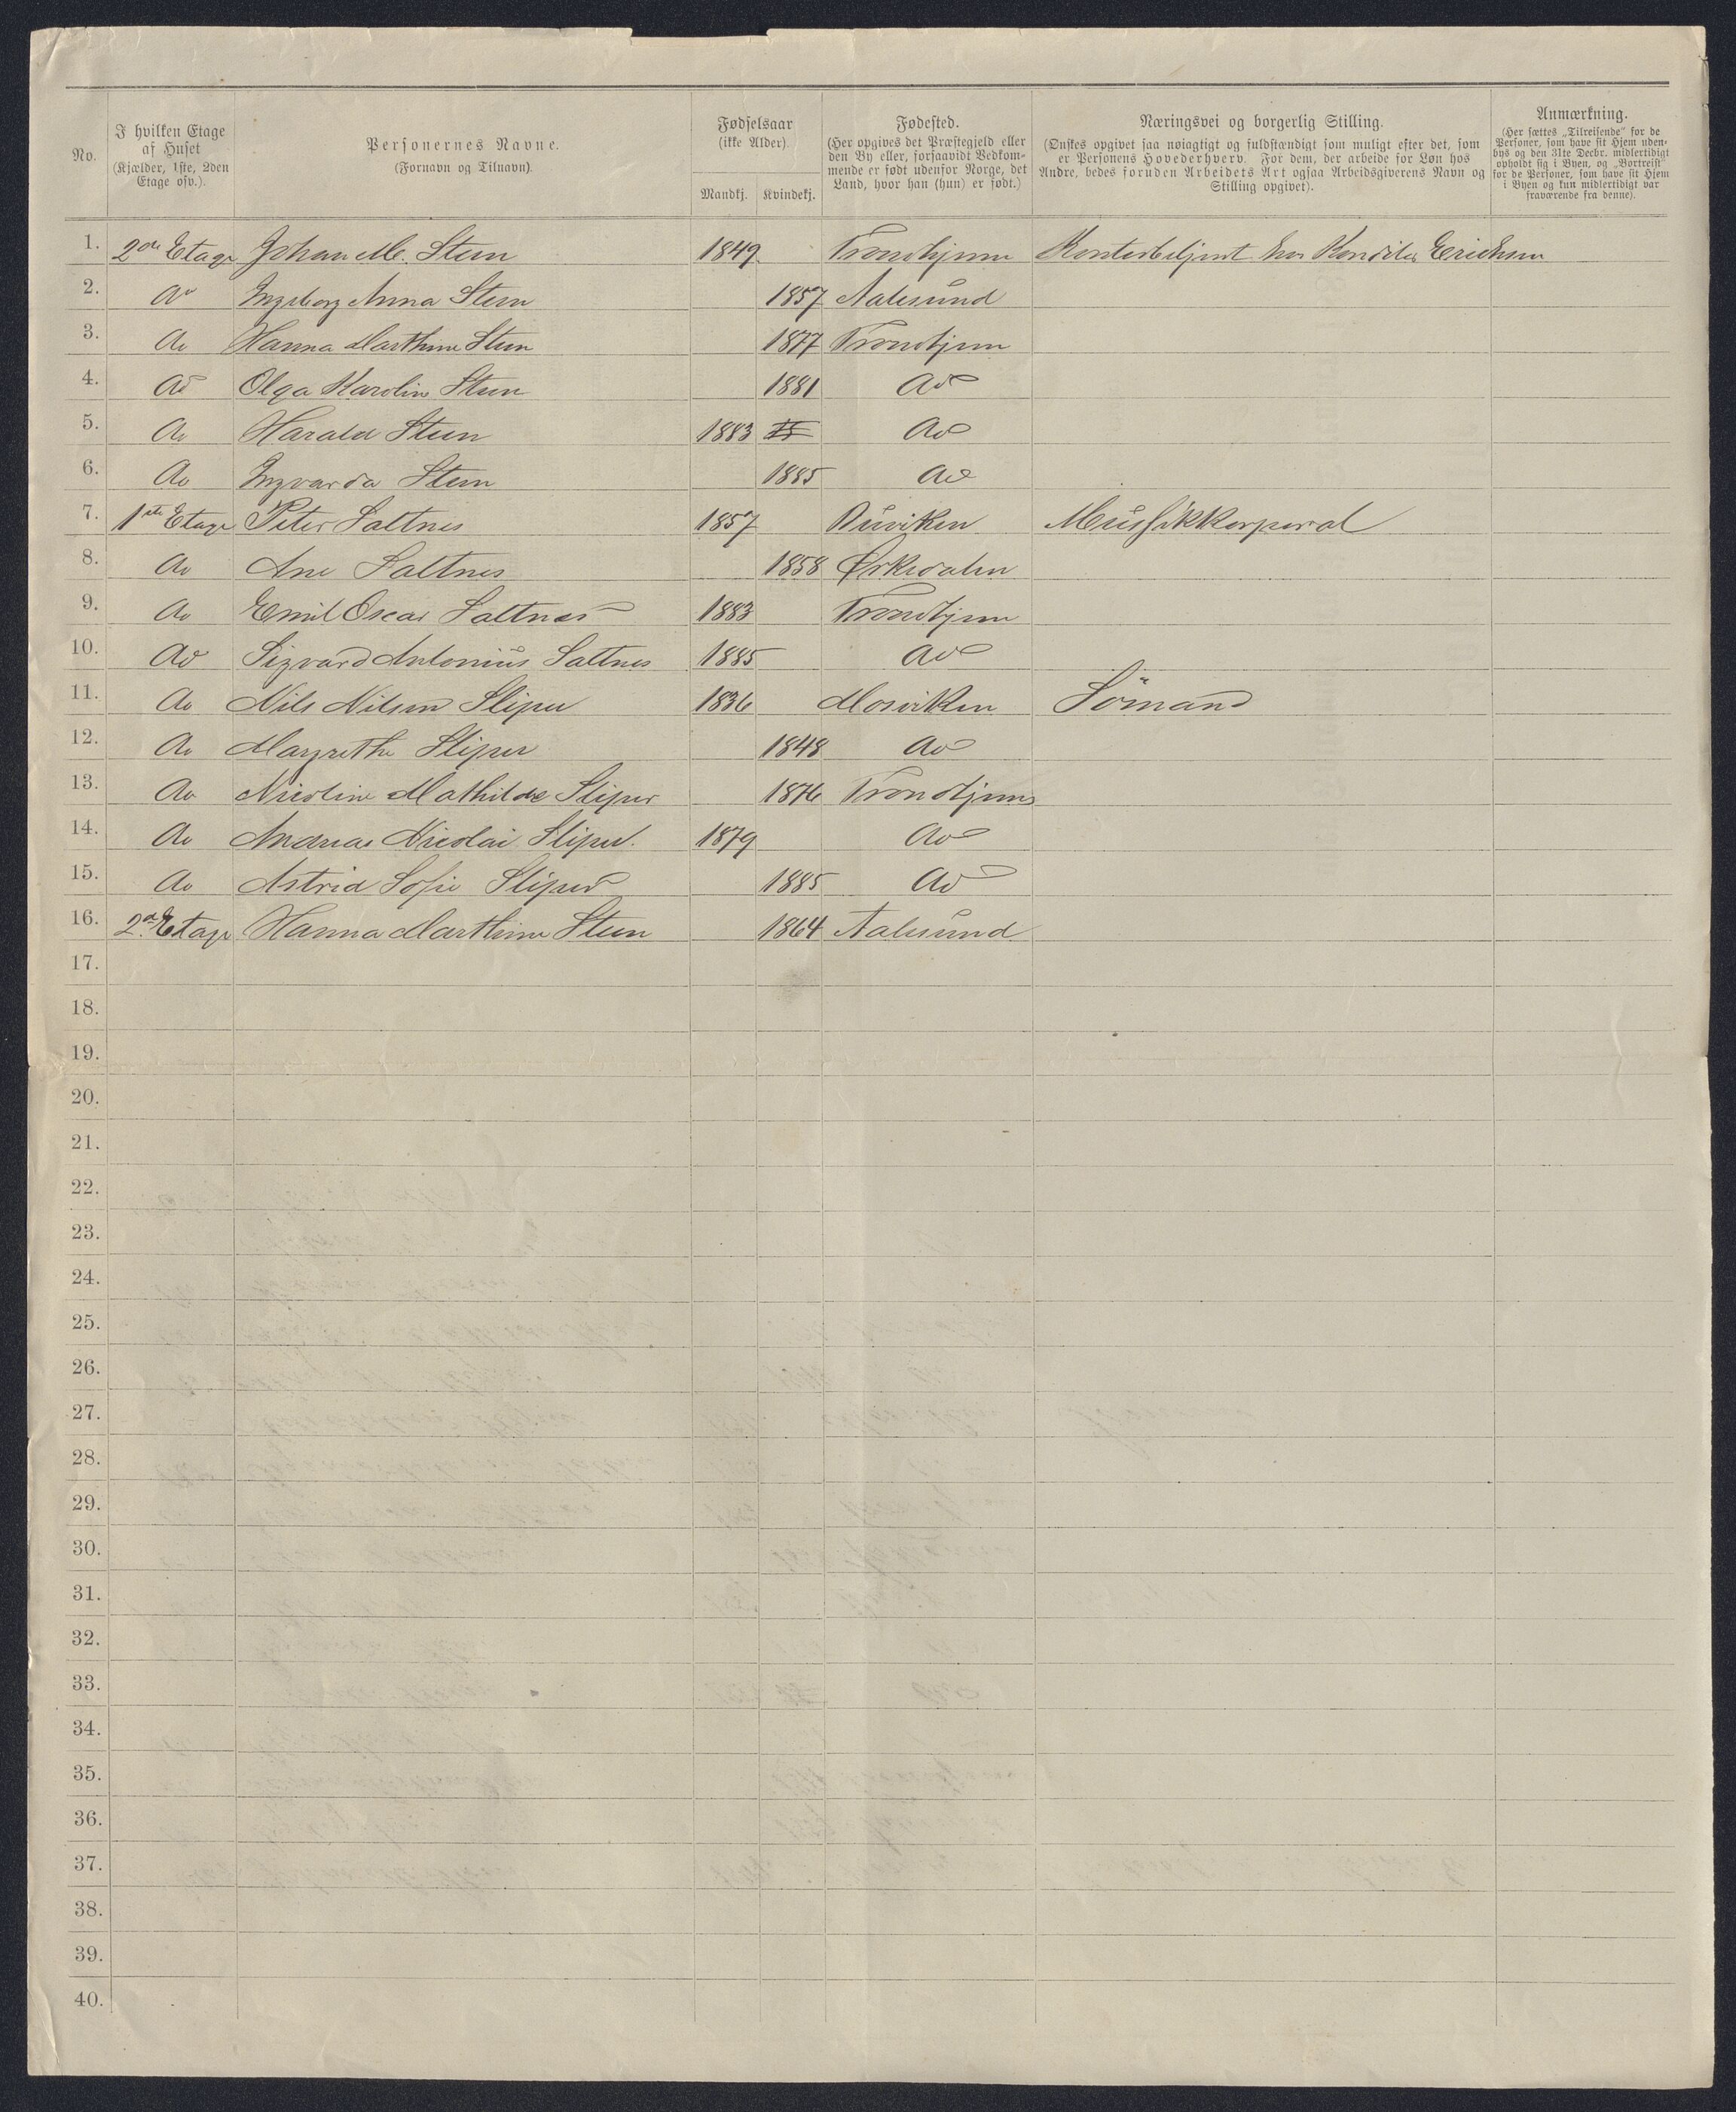 No.
I hvilken Etage af Huset (Kjælder, 1ste, 2den Etage osv.).
Personernes Navne. (Fornavn og Tilnavn).
Fødselsaar (ikke Alder). Mandkj. Kvindekj.
Fødested. (Her opgives det Præstegjeld eller den By eller, forsaavidt Vedkommende er født udenfor Norge, det Land, hvor han (hun) er født.)
Næringsvei og borgerlig Stilling. (Ønskes opgivet saa nøiagtigt og fuldstændigt som muligt efter det, som er Personens Hovederhverv. For dem, der arbeide for Løn hos Andre, bedes foruden Arbeidets Art ogsaa Arbeidsgiverens Navn og Stilling opgivet).
Anmærkning. (Her sættes „Tilreisende" for de Personer, som have sit Hjem udenbys og den 31te Decbr. midlertidigt opholdt sig i Byen, og „Bortreist" for de Personer, som have sit Hjem i Byen og kun midlertidigt var fraværende fra denne).
1. 2den Etage Johan M. Steen 1849 Trondhjem Kontorbetjent hos Konditor Erichsen
2. do Ingeborg Anna Steen 1857 Aalesund
3. do Hanna Marthine Steen 1877 Trondhjem
4. do Olga Karoline Steen 1881 do
5. do Harald Steen 1883 do
6. do Ingvarda Steen 1885 do
7. 1ste Etage Peter Saltnes 1857 Buviken Mussikkorperal
8. do Ane Saltnes 1858 Ørkedalen
9. do Emil Oscar Saltnes 1883 Trondhjem
10. do Sigvard Antonius Saltnes 1885 do
11. do Nils Nilsen Sliper 1836 Mosviken Sömand
12. do Margrethe Sliper 1848 do
13. do Nicoline Mathilde Sliper 1876 Trondhjem
14. do Andreas Nicolai Sliper. 1879 do
15. do Astrid Sofie Sliper 1885 do
16. 2d Etage Hanna Marthine Steen 1864 Aalesund
17.
18.
19.
20.
21.
22.
23.
24.
25.
26.
27.
28.
29.
30.
31.
32.
33.
34.
35.
36.
37.
38.
39.
40.